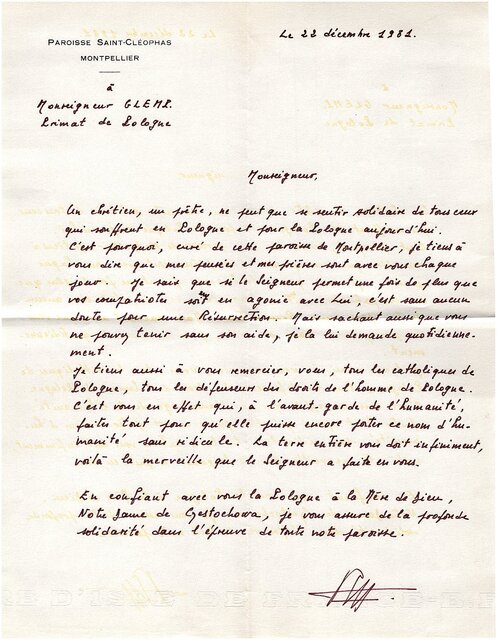 Le 22 décembre 1981.
PAROISSE SAINT-CLÉOPHAS
MONTPELLIER
à
Monseigneur GLEMP
Primat de Pologne
Monseigneur,
Un chrétien, un prêtre, ne peut que se sentir solidaire de tous ceux
qui souffrent en Pologne et pour la Pologne aujourd'hui.
C'est pourquoi, curé de cette paroisse de Montpellier, je tiens à
vous dire que mes pensées et mes prières sont avec vous chaque
jour. Je sais que si le Seigneur permet une fois de plus que
vos compatriotes soient en agonie avec Lui, c'est sans aucun
doute pour une Résurrection. Mais sachant aussi que vous
ne pouvez tenir sans son aide, je la lui demande quotidienne-
ment.
Je tiens aussi à vous remercier, vous, tous les catholiques de
Pologne, tous les défenseurs des droits de l'homme de Pologne.
C'est vous en effet qui, à l'avant-garde de l'humanité,
faites tout pour qu'elle puisse encore porter ce nom d'hu-
manité sans ridicule. La terre entière vous doit infiniment,
voilà la merveille que le Seigneur a faite en vous.
En confiant avec vous la Pologne à la Mère de Dieu,
Notre Dame de Czestochowa, je vous assure de la profonde
solidarité dans l'épreuve de toute notre paroisse.